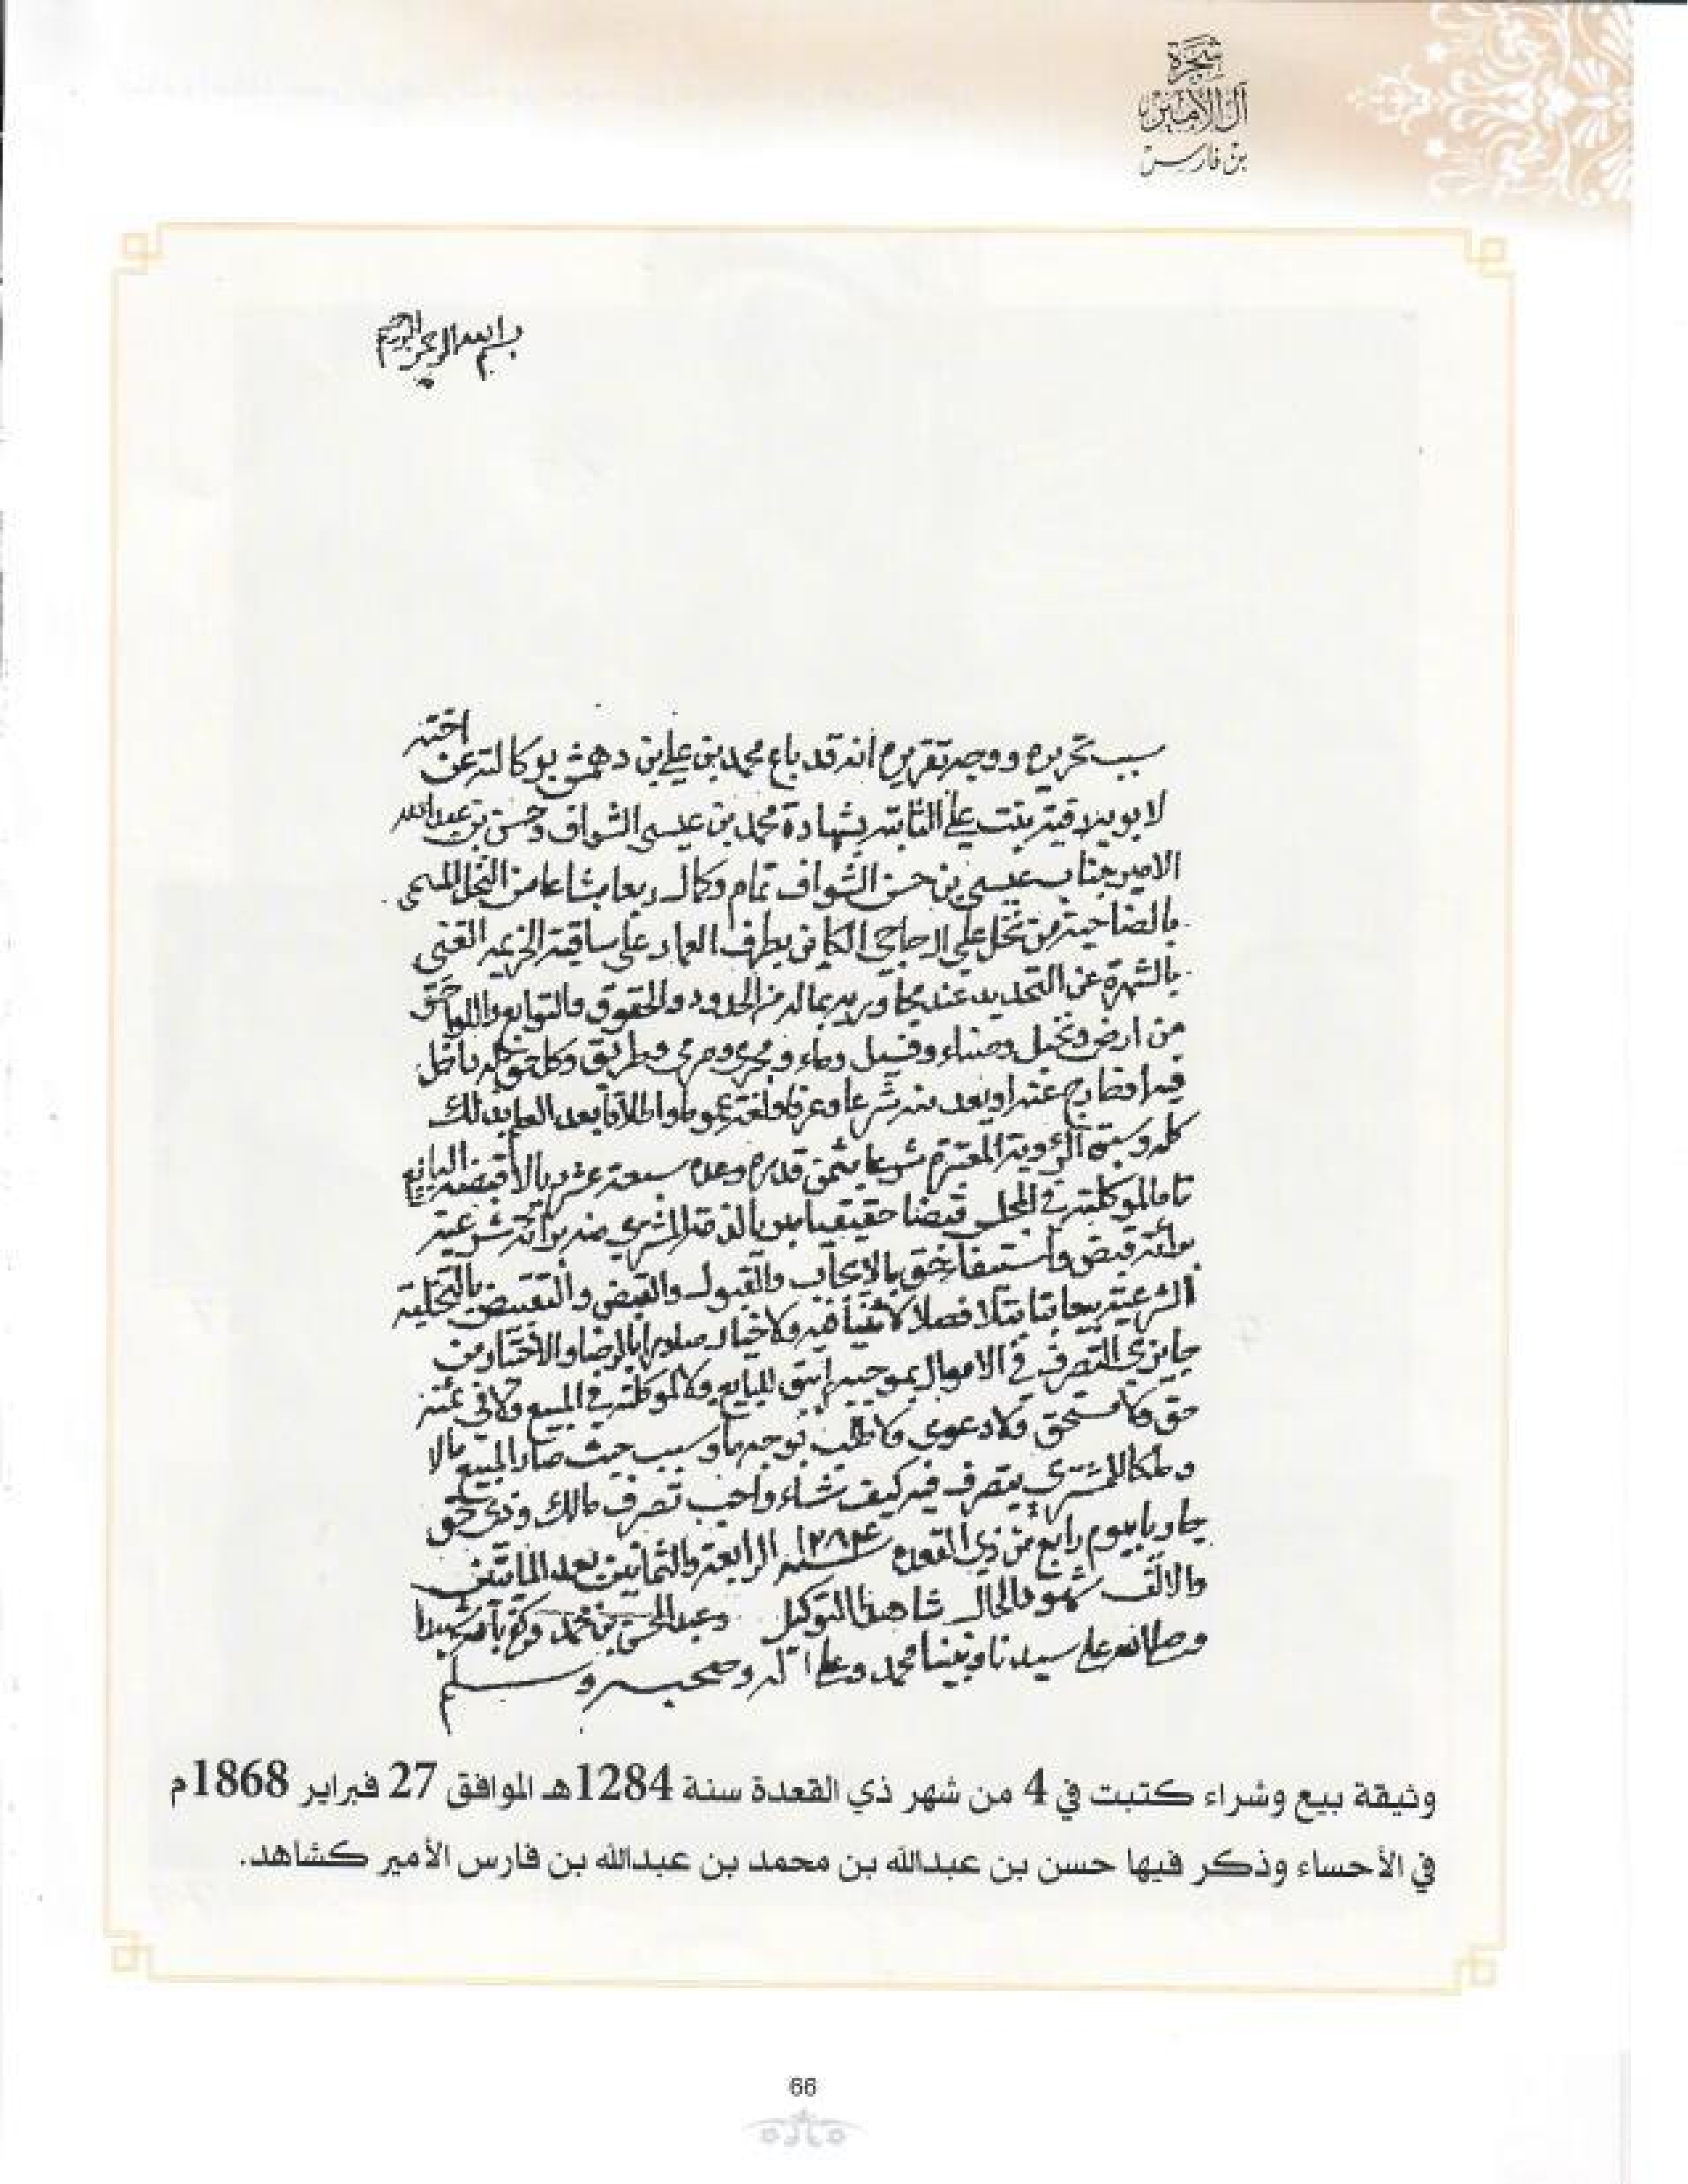 شجرة
آل الأمير
بن فارس
بسم الله الرحمن الرحيم
سبب تحريره ووجه تقريره انه قد باع محمد بن علي بن دهمش بوكالته عن اخته
لابويه رقية بنت علي الثابته بشهادة محمد بن عيسى الشواف وحسن بن عبدالله
الامير جناب عيسى بن حسن الشواف تمام وكمال ربعا مشاعا من النخل المسمى
بالضاحية من نخل علي الكاين بطرف العمار على ساقية الغني
بالشهرة عن التحديد عند مجاوريه بماله من الحدود والحقوق والتوابع واللواحق
من ارض ونخيل وبناء وفسيل وماء ومجرى ومرمى وطريق وكل حق له داخل
فيه او خارج عنه او يعد منه شرعا وعرفا ولغة عموما واطلاقا بعد العلم بذلك
كله وسبق الرؤية المعتبرة شرعا بثمن قدره وعده سبعة عشر ريالا قبضه البايع
تاما لموكلته في المجلس قبضا حقيقيا بريت الذمة المشتري منه براءة شرعية
براءة قبض واستيفاء بالايجاب والقبول والقبض والتقبيض بالتخلية
الشرعية بيعا بتاتا بتلا فصلا لا ثنيا فيه ولا خيار صادرا بالرضا والاختيار من
جايزي التصرف في الاموال بموجبه لم يبق للبايع ولا لموكلته في المبيع ولا في ثمنه
حق ولا مستحق ولا دعوى ولا طلب بوجه ما وسبب حيث صار المبيع مالا
وملكا للمشتري يتصرف فيه كيف شاء واحب تصرف مالك وذي حق
جار بايوم رابع من ذي القعدة سنة ١٢٨٤ الرابعة والثمانين بعد المائتين
والالف شهود الحال شاهدا التوكيل وعبدالمحسن بن محمد وكفى بالله شهيدا
وصلى الله على سيدنا ونبينا محمد وعلى اله وصحبه وسلم
وثيقة بيع وشراء كتبت في 4 من شهر ذي القعدة سنة 1284هـ الموافق 27 فبراير 1868م
في الأحساء وذكر فيها حسن بن عبدالله بن محمد بن عبدالله بن فارس الأمير كشاهد.
66